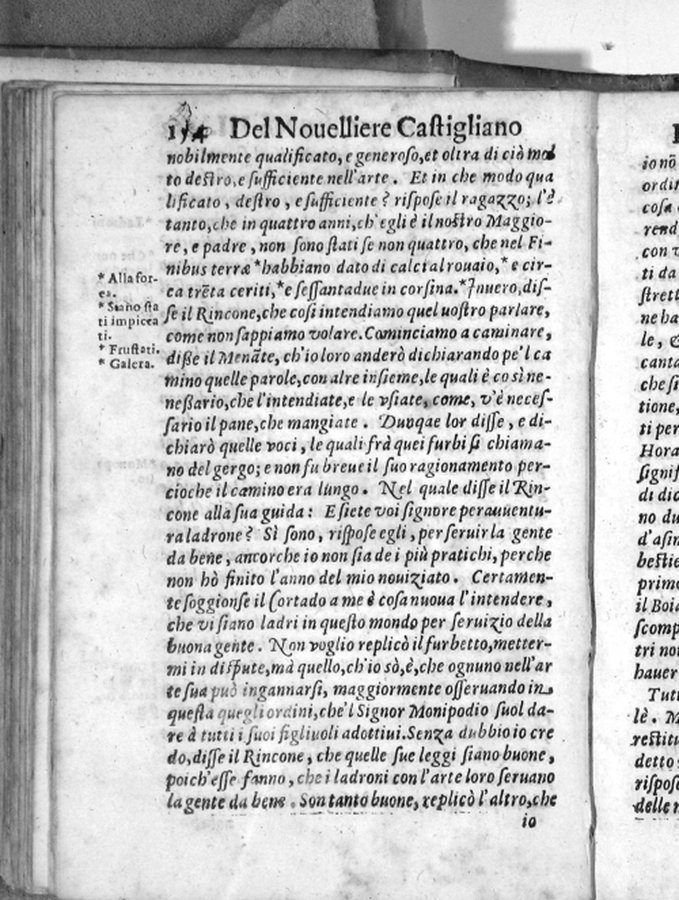 154 Del Nouelliere Castigliano
nobilmente qualificato, e generoso, et oltra di ciò mol
to destro, e sufficiente nell'arte. Et in che modo qua
lificato, destro, e sufficiente? rispose il ragazzo; l'è
tanto, che in quattro anni, ch'egli è il nostro Maggio-
re, e padre, non sono stati se non quattro, che nel Fi-
nibus terræ *habbiano dato di calci al rouaio,* e cir-
ca trẽta ceriti,*e sessantadue in corsina.*Inuero, dis-
se il Rincone, che cosi intendiamo quel uostro parlare,
come non sappiamo volare. Cominciamo a caminare,
diße il Menãte, ch'io loro anderò dichiarando pe'l ca
mino quelle parole, con alre insieme, le quali è co sì ne-
neßario, che l'intendiate, e le vsiate, come, v'è neces-
sario il pane, che mangiate. Dunqae lor disse, e di-
chiarò quelle voci, le quali frà quei furbi si chiama-
no del gergo; e non fu breue il suo ragionamento per-
cioche il camino era lungo. Nel quale disse il Rin-
cone alla sua guida: E siete voi signore perauuentu-
ra ladrone? Sì sono, rispose egli, per seruir la gente
da bene, ancorche io non sia de i più pratichi, perche
non hò finito l'anno del mio nouiziato. Certamen-
te soggionse il Cortado a me è cosa nuoua l'intendere,
che vi siano ladri in questo mondo per seruizio della
buona gente. Non voglio replicò il furbetto, metter-
mi in dispute, mà quello, ch'io sò, è, che ognuno nell'ar
te sua può ingannarsi, maggiormente osseruando in
questa quegli ordini, che'l Signor Monipodio suol da-
re à tutti i suoi figliuoli adottiui. Senza dubbio io cre
do, disse il Rincone, che quelle sue leggi siano buone,
poich'esse fanno, che i ladroni con l'arte loro seruano
la gente da bene. Son tanto buone, replicò l'altro, che
io
* Alla for-
es.
* Siano sta
ti impicca
ti.
* Frustati.
* Galera.
io nõ
ordin
cosa
rend
con v
ti da
strett
ne ha
le, &
canta
che si
tione,
ti per
Hora
signif
di dic
no du
d'asin
bestie
primo
il Boia
scomp
tri non
hauer
Tutt
lè. M
restitu
detto
rispose
delle n